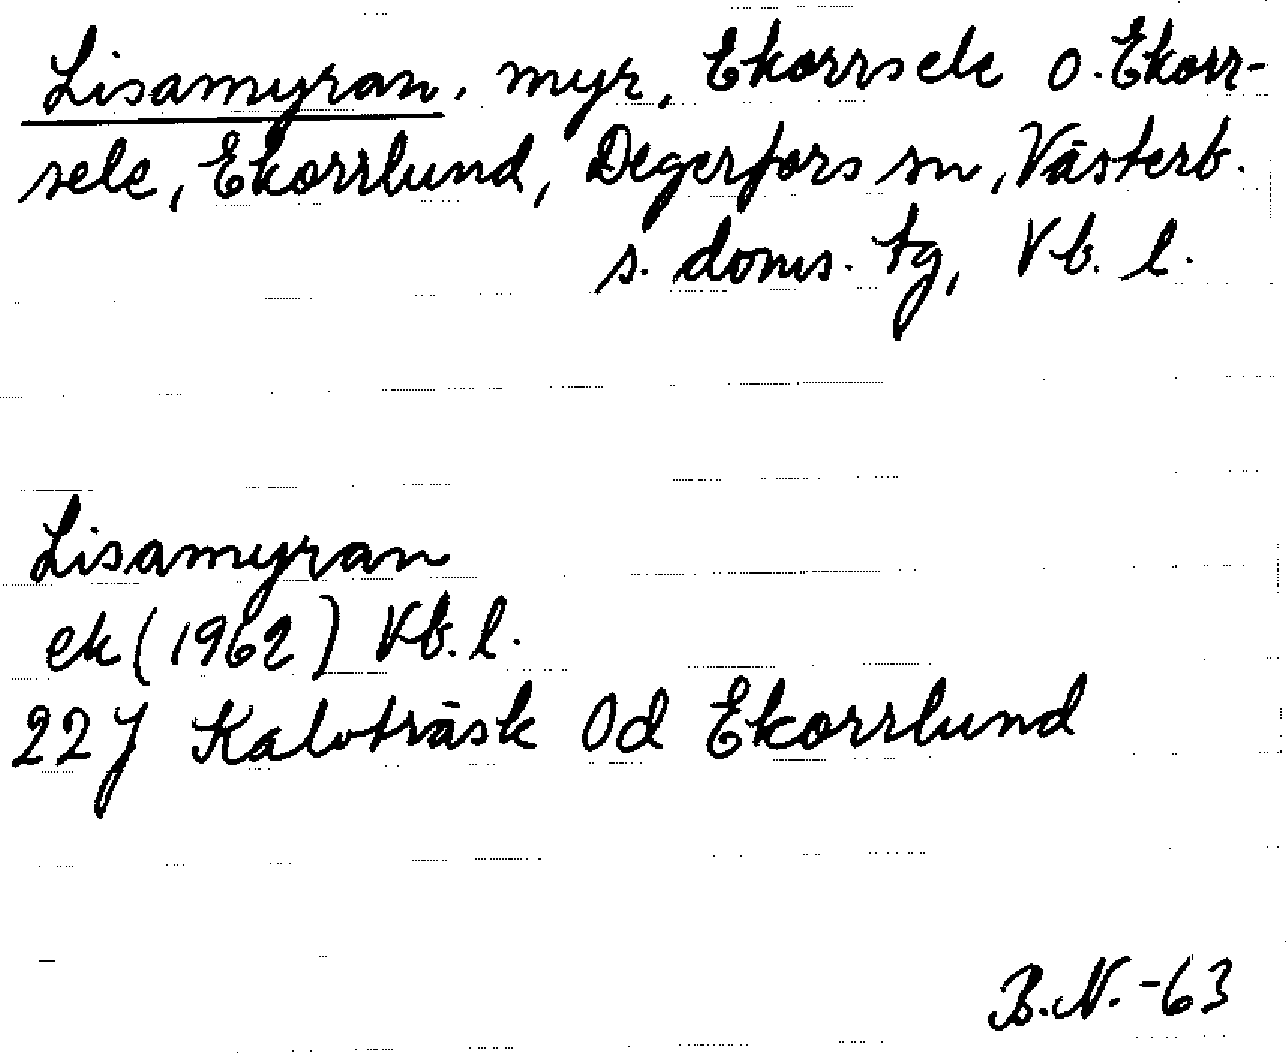 Lisamyran, myr, Ekorrsele o. Ekorr-
sele, Ekorrlund, Degerfors sn, Västerb.
s. doms. tg, Vb. l.
Lisamyran
ek (1962) Vb. l.
22J Kalvträsk 0d Ekorrlund
B.N. -63